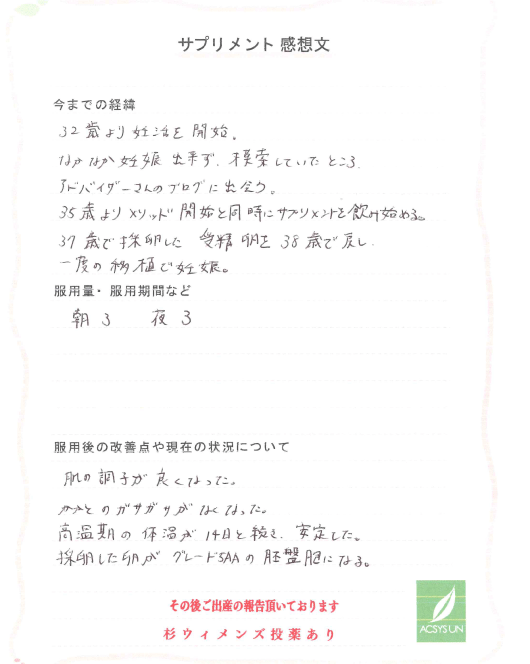 サプリメント 感想文
今までの経緯
32歳より妊活を開始。
なかなか妊娠出来ず、模索していたところ、
アドバイザーさんのブログに出会う。
35歳よりメソッド開始と同時にサプリメントを飲み始める。
37歳で採卵した受精卵を38歳で戻し、
一度の移植で妊娠。
服用量・服用期間など
朝3 夜3
服用後の改善点や現在の状況について
肌の調子が良くなった。
かかとのガサガサがなくなった。
高温期の体温が14日と続き、安定した。
採卵した卵がグレード5AAの胚盤胞になる。
その後ご出産の報告頂いております
杉ウィメンズ投薬あり
ACSYSUN